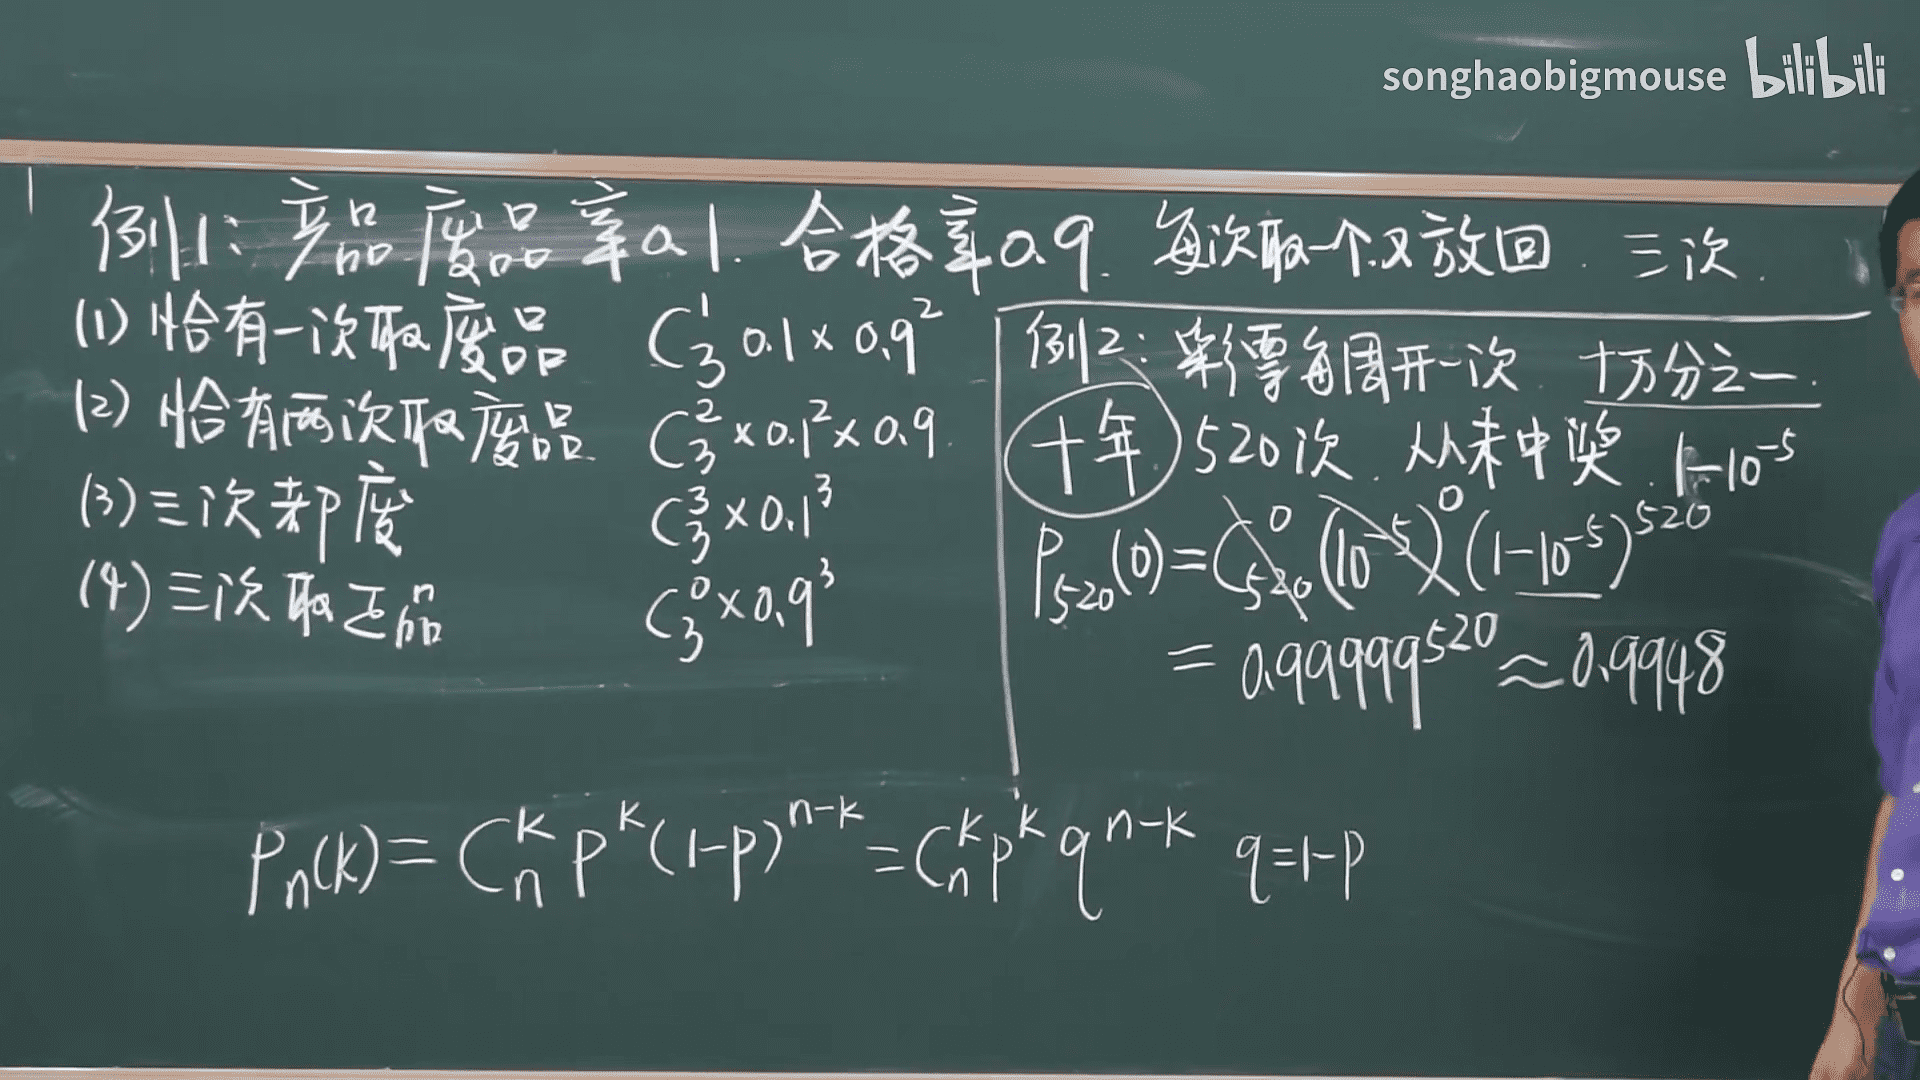 songhaobigmouse bilibili
例1: 产品 废品率0.1. 合格率0.9. 每次取一个又放回. 三次.
(1) 恰有一次取废品 C₃¹ 0.1 × 0.9²
(2) 恰有两次取废品 C₃² × 0.1² × 0.9.
(3) 三次都废 C₃³ × 0.1³
(4) 三次取正品 C₃⁰ × 0.9³
例2: 彩票每周开一次. 十万分之一.
十年 520次. 从未中奖. 1-10⁻⁵
P₅₂₀(0) = C₅₂₀⁰ (10⁻⁵)⁰ (1-10⁻⁵)⁵²⁰
= 0.99999⁵²⁰ ≈ 0.9948
Pₙ(k) = Cₙᵏ pᵏ (1-p)ⁿ⁻ᵏ = Cₙᵏ pᵏ qⁿ⁻ᵏ q=1-p